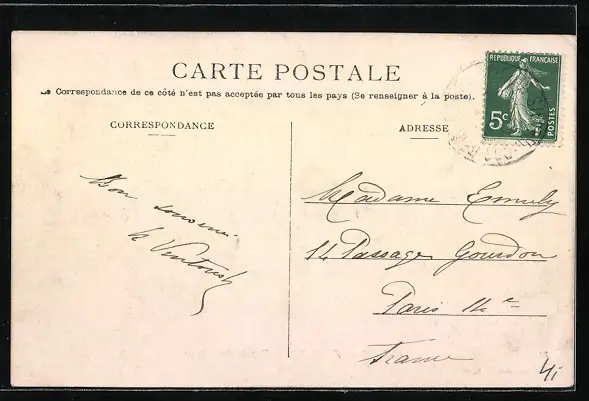 CARTE POSTALE
La Correspondance de ce côté n'est pas acceptée par tous les pays (Se renseigner à la poste).
CORRESPONDANCE
ADRESSE
REPUBLIQUE FRANÇAISE
5c
POSTES
Bon souvenir
Madame
14 Passage Gourdon
Paris 14e
France